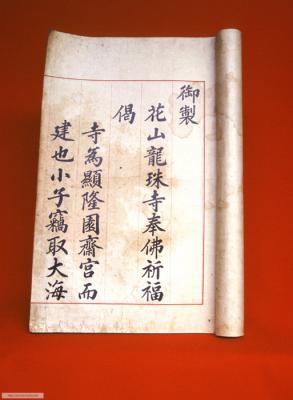 御製
花山龍珠寺奉佛祈福
偈
寺為顯隆園齋宮而
建也小子竊取大海